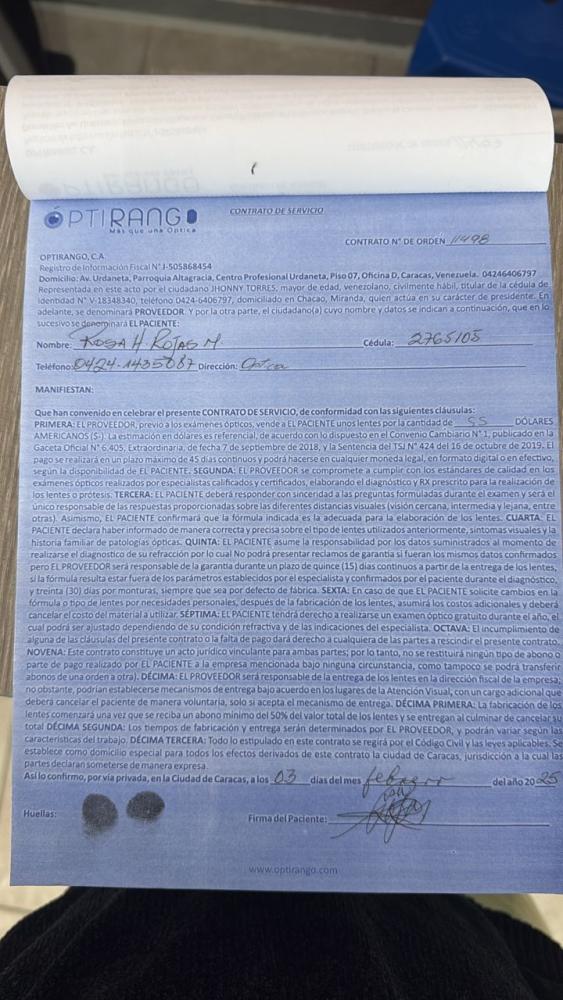 ÓPTIRANGO
Más que una Óptica
CONTRATO DE SERVICIO
CONTRATO N° DE ORDEN 11498
OPTIRANGO, C.A.
Registro de Información Fiscal N° J-505868454
Domicilio: Av. Urdaneta, Parroquia Altagracia, Centro Profesional Urdaneta, Piso 07, Oficina D, Caracas, Venezuela. 04246406797
Representada en este acto por el ciudadano JHONNY TORRES, mayor de edad, venezolano, civilmente hábil, titular de la cédula de
identidad N° V-18348340, teléfono 0424-6406797, domiciliado en Chacao, Miranda, quien actúa en su carácter de presidente. En
adelante, se denominará PROVEEDOR. Y por la otra parte, el ciudadano(a) cuyo nombre y datos se indican a continuación, que en lo
sucesivo se denominará EL PACIENTE:
Nombre: Rosa H Rojas M. Cédula: 2765105
Teléfono: 0424-1435087 Dirección:
MANIFIESTAN:
Que han convenido en celebrar el presente CONTRATO DE SERVICIO, de conformidad con las siguientes cláusulas:
PRIMERA: EL PROVEEDOR, previo a los exámenes ópticos, vende a EL PACIENTE unos lentes por la cantidad de 55 DÓLARES
AMERICANOS ($-). La estimación en dólares es referencial, de acuerdo con lo dispuesto en el Convenio Cambiario N° 1, publicado en la
Gaceta Oficial N° 6.405, Extraordinaria, de fecha 7 de septiembre de 2018, y la Sentencia del TSJ N° 424 del 16 de octubre de 2019. El
pago se realizará en un plazo máximo de 45 días continuos y podrá hacerse en cualquier moneda legal, en formato digital o en efectivo,
según la disponibilidad de EL PACIENTE. SEGUNDA: EL PROVEEDOR se compromete a cumplir con los estándares de calidad en los
exámenes ópticos realizados por especialistas calificados y certificados, elaborando el diagnóstico y RX prescrito para la realización de
los lentes o prótesis. TERCERA: EL PACIENTE deberá responder con sinceridad a las preguntas formuladas durante el examen y será el
único responsable de las respuestas proporcionadas sobre las diferentes distancias visuales (visión cercana, intermedia y lejana, entre
otras). Asimismo, EL PACIENTE confirmará que la fórmula indicada es la adecuada para la elaboración de los lentes. CUARTA: EL
PACIENTE declara haber informado de manera correcta y precisa sobre el tipo de lentes utilizados anteriormente, síntomas visuales y la
historia familiar de patologías ópticas. QUINTA: EL PACIENTE asume la responsabilidad por los datos suministrados al momento de
realizarse el diagnostico de su refracción por lo cual No podrá presentar reclamos de garantía si fueran los mismos datos confirmados
pero EL PROVEEDOR será responsable de la garantía durante un plazo de quince (15) días continuos a partir de la entrega de los lentes,
si la fórmula resulta estar fuera de los parámetros establecidos por el especialista y confirmados por el paciente durante el diagnóstico,
y treinta (30) días por monturas, siempre que sea por defecto de fábrica. SEXTA: En caso de que EL PACIENTE solicite cambios en la
fórmula o tipo de lentes por necesidades personales, después de la fabricación de los lentes, asumirá los costos adicionales y deberá
cancelar el costo del material a utilizar. SÉPTIMA: EL PACIENTE tendrá derecho a realizarse un examen óptico gratuito durante el año, el
cual podrá ser ajustado dependiendo de su condición refractiva y de las indicaciones del especialista. OCTAVA: El incumplimiento de
alguna de las cláusulas del presente contrato o la falta de pago dará derecho a cualquiera de las partes a rescindir el presente contrato.
NOVENA: Este contrato constituye un acto jurídico vinculante para ambas partes; por lo tanto, no se restituirá ningún tipo de abono o
parte de pago realizado por EL PACIENTE a la empresa mencionada bajo ninguna circunstancia, como tampoco se podrá transferir
abonos de una orden a otra). DÉCIMA: EL PROVEEDOR será responsable de la entrega de los lentes en la dirección fiscal de la empresa;
no obstante, podrían establecerse mecanismos de entrega bajo acuerdo en los lugares de la Atención Visual, con un cargo adicional que
deberá cancelar el paciente de manera voluntaria, solo si acepta el mecanismo de entrega. DÉCIMA PRIMERA: La fabricación de los
lentes comenzará una vez que se reciba un abono mínimo del 50% del valor total de los lentes y se entregan al culminar de cancelar su
total DÉCIMA SEGUNDA: Los tiempos de fabricación y entrega serán determinados por EL PROVEEDOR, y podrán variar según las
características del trabajo. DÉCIMA TERCERA: Todo lo estipulado en este contrato se regirá por el Código Civil y las leyes aplicables. Se
establece como domicilio especial para todos los efectos derivados de este contrato la ciudad de Caracas, jurisdicción a la cual las
partes declaran someterse de manera expresa.
Así lo confirmo, por vía privada, en la Ciudad de Caracas, a los 03 días del mes febrero del año 2025
Huellas:
Firma del Paciente:
www.optirango.com